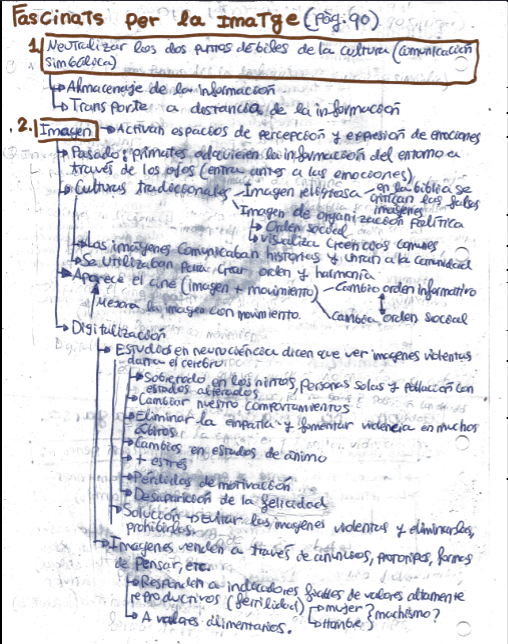 Fascinats per la Imatge (Pág. 90)
1. Neutralizar los dos puntos débiles de la cultura (comunicación
simbólica)
→ Almacenaje de la información
→ Transporte a distancia de la información
2. Imagen → Activan espacios de percepción y expresión de emociones
→ Pasado: primates adquieren la información del entorno a
través de los ojos (entra antes a las emociones)
→ Culturas tradicionales - Imagen religiosa - en la biblia se
critican las falsas
imágenes
Imagen de organización política
→ Orden social
→ Visualiza creencias comunes
→ Las imágenes comunicaban historias y unían a la comunidad
→ Se utilizaban para crear orden y harmonía
→ Aparece el cine (imagen + movimiento) - Cambio orden informativo
Mejora la imagen con movimiento. Cambia orden social
→ Digitalización
→ Estudios en neurociencia dicen que ver imagenes violentas
daña el cerebro
→ Sobretodo en los niños, personas solas y población con
estados alterados
→ Cambiar nuestro comportamientos
→ Eliminar la empatía y fomentar violencia en muchos
ámbitos
→ Cambios en estados de animo
→ + estrés
→ Pérdidas de motivación
→ Desaparición de la felicidad
→ Solución → Evitar las imagenes violentas y eliminarlas,
prohibirlas.
→ Imagenes venden a través de anuncios, prototipos, formas
de pensar, etc.
→ Responden a indicadores fiables de valores altamente
reproductivos (fertilidad) → mujer? machismo?
→ Hombre
→ A valores alimentarios.